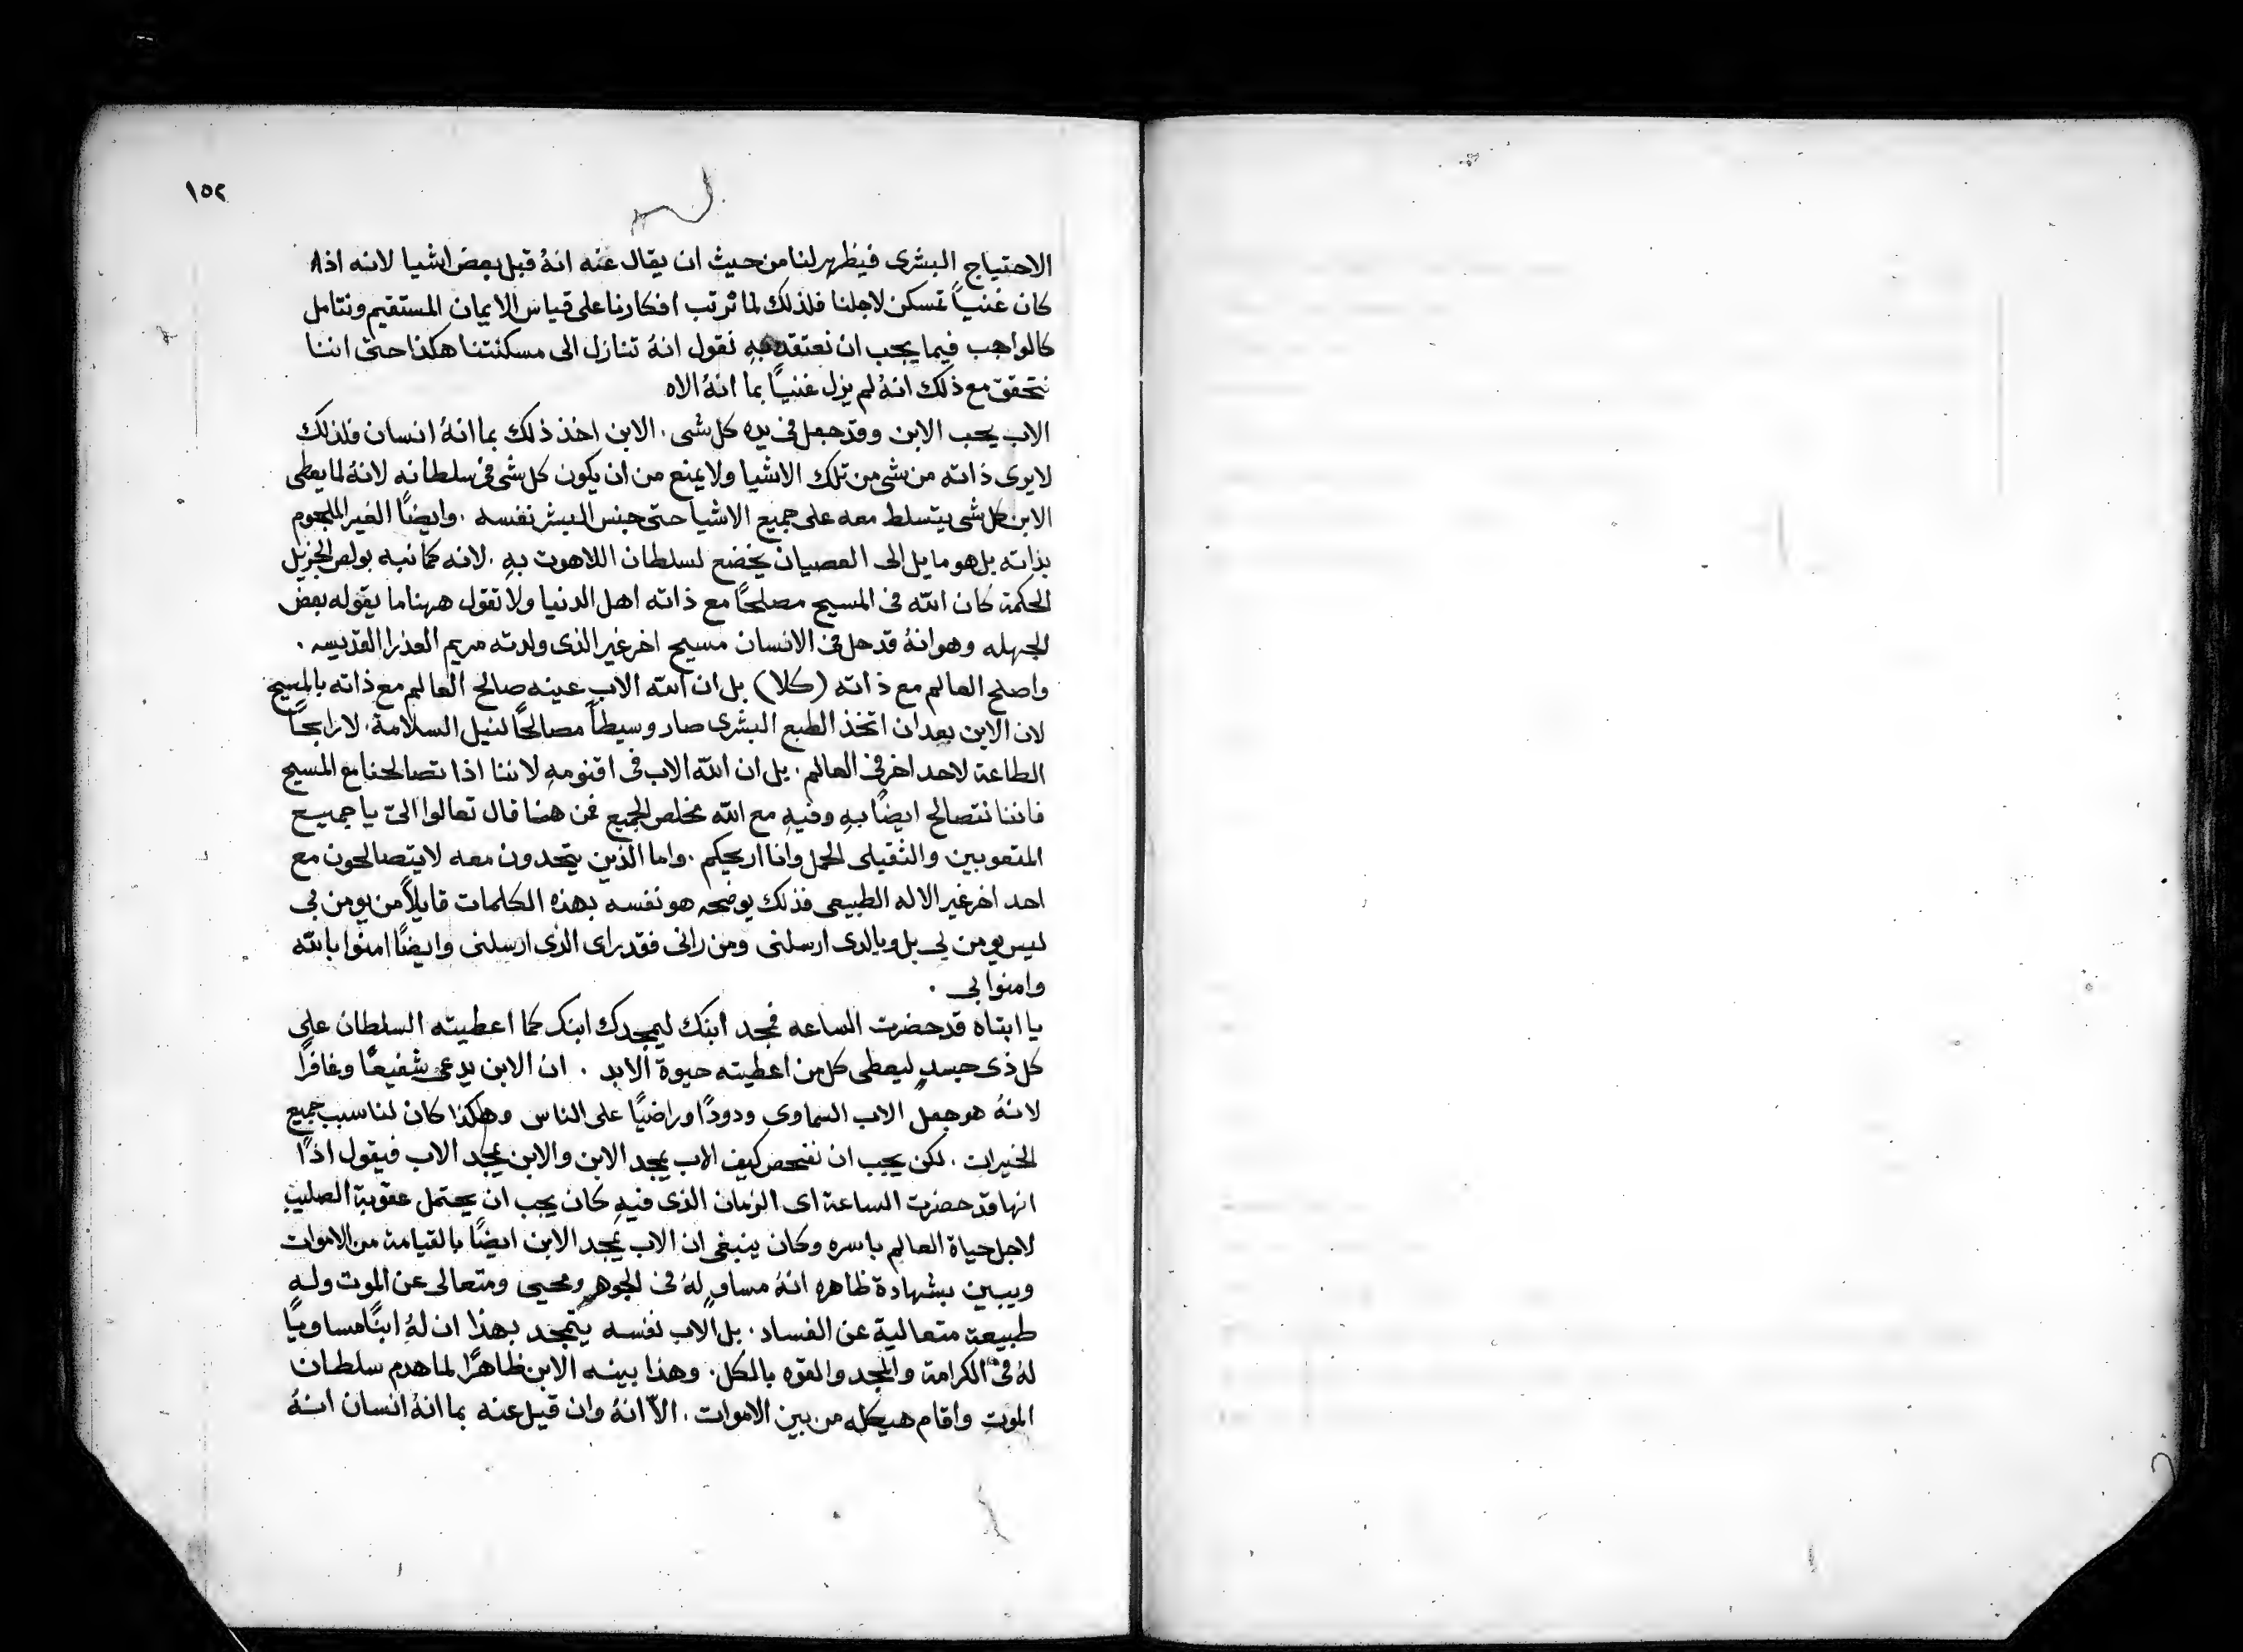 ١٥٢
الاحتياج البشرى فيظهر لنا من حيث ان يقال عنه انهُ قبل بعض اشيا لانه اذا
كان غنياً تمسكن لاجلنا فلذلك لما نرتب افكارنا على قياس الايمان المستقيم ونتامل
كالواجب فيما يجب ان نعتقد بهِ نقول انهُ تنازل الى مسكنتنا هكذا حتى اننا
نتحقق مع ذلك انهُ لم يزل غنياً بما انهُ الاه
الاب يحب الابن وقد جعل فى يده كل شى . الابن اخذ ذلك بما انهُ انسان فلذلك
لا يرى ذاته من شى من تلك الاشيا ولا يمنع من ان يكون كل شى فى سلطانه لانهُ لما يعطى
الابن كل شى يتسلط معه على جميع الاشيا حتى جنس البشر نفسه . وايضًا الغير الملجوم
بذاته بل هو مايل الى العصيان يخضع لسلطان اللاهوت بهِ . لانه كما نبه بولص الجزيل
الحكمة كان الله فى المسيح مصلحًا مع ذاته اهل الدنيا ولا تقول ههنا ما يقوله بعض
الجهله وهو انهُ قد حل فى الانسان مسيح اخر غير الذى ولدته مريم العذرا القديسه .
واصلح العالم مع ذاته (كلا) بل ان الله الاب عينه صالح العالم مع ذاته بالمسيح
لان الابن بعد ان اتخذ الطبع البشرى صار وسيطاً مصالحًا لنيل السلامة . لا رابحًا
الطاعة لاحد اخر فى العالم . بل ان الله الاب فى اقنومهِ لاننا اذا تصالحنا مع المسيح
فاننا نتصالح ايضًا بهِ وفيهِ مع الله مخلص الجميع فمن هنا قال تعالوا الىّ يا جميع
المتعوبين والثقيلى الحمل وانا اريحكم . واما الذين يتحدون معه لا يتصالحون مع
احد اخر غير الاله الطبيعى فذلك يوضحه هو نفسه بهذه الكلمات قايلاً من يومن بى
ليس يومن بى بل وبالدى ارسلنى ومن رانى فقد راى الذى ارسلنى وايضًا امنوا بالله
وامنوا بى .
يا ابتاه قد حضرت الساعه فمجد ابنك ليمجدك ابنك كما اعطيته السلطان على
كل ذى جسدٍ ليعطى كل من اعطيته حيوة الابد . ان الابن يدعى شفيعًا وغافرًا
لانهُ هو جعل الاب السماوى ودودًا وراضيًا على الناس وهكذا كان لنا سبب جميع
الخيرات . لكن يجب ان نفحص كيف الاب يمجد الابن والابن يمجد الاب فيقول اذًا
انها قد حضرت الساعة اى الزمان الذى فيهِ كان يجب ان يحتمل عقوبة الصليب
لاجل حياة العالم باسره وكان ينبغى ان الاب يمجد الابن ايضًا بالقيامة من الاموات
ويبين بشهادة ظاهره انهُ مساوٍ لهُ فى الجوهر ومحيى ومتعالى عن الموت وله
طبيعة متعالية عن الفساد . بل الاب نفسه يتمجد بهذا ان لهُ ابنًا مساويًا
لهُ فى الكرامة والمجد والقوه بالكل . وهذا بينه الابن ظاهرًا لما هدم سلطان
الموت واقام هيكله من بين الاموات . الاّ انهُ وان قيل عنه بما انهُ انسان انهُ